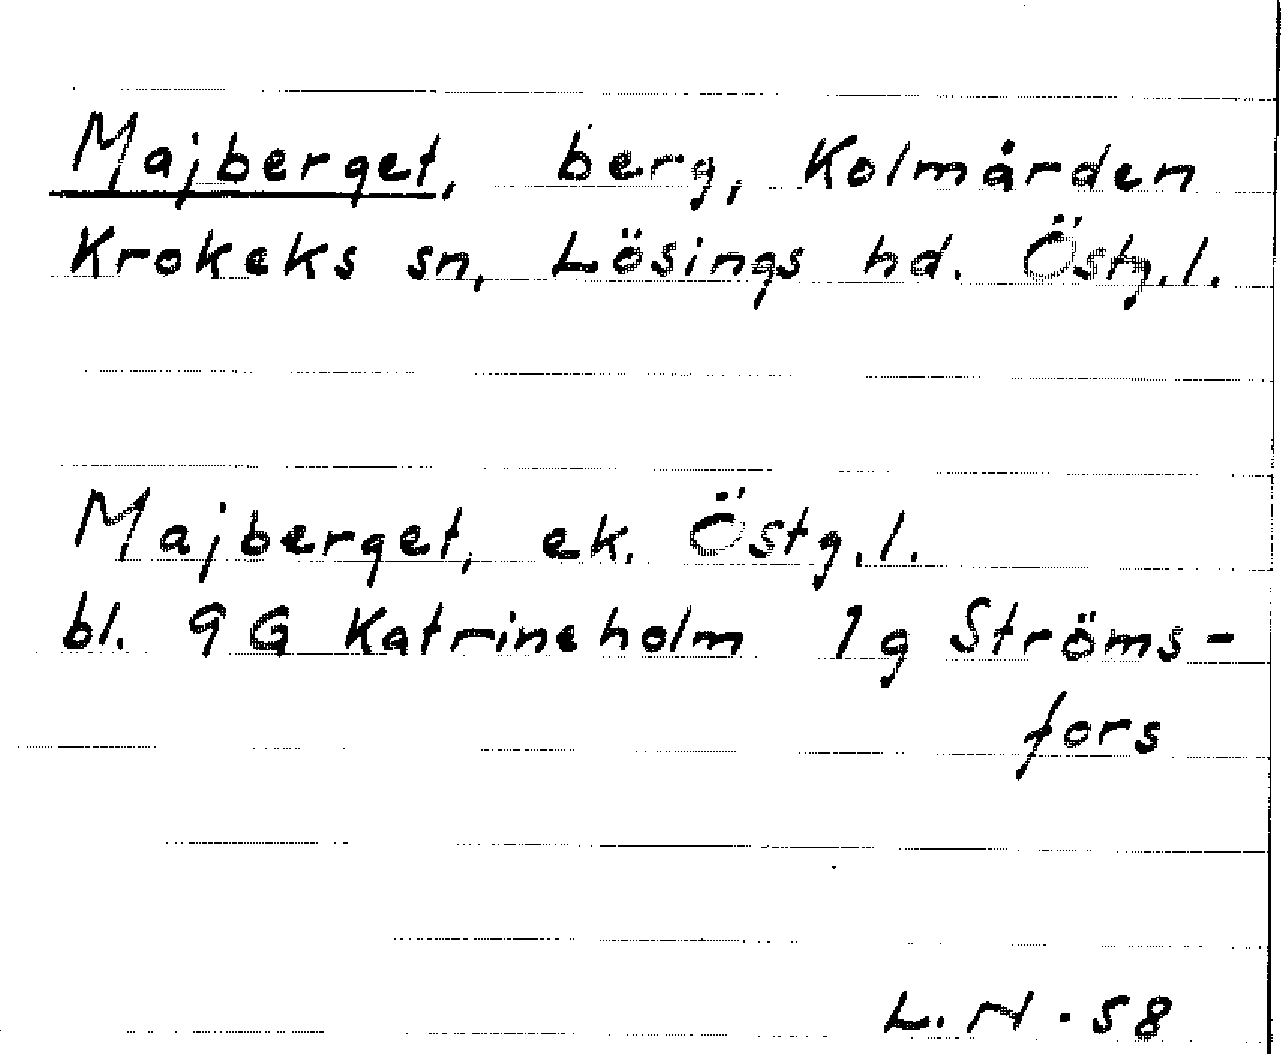 Majberget, berg, Kolmården
Krokeks sn, Lösings hd. Östg.l.
Majberget, ek. Östg.l.
bl. 9G Katrineholm 1g Ströms-
fors
L.N. 58